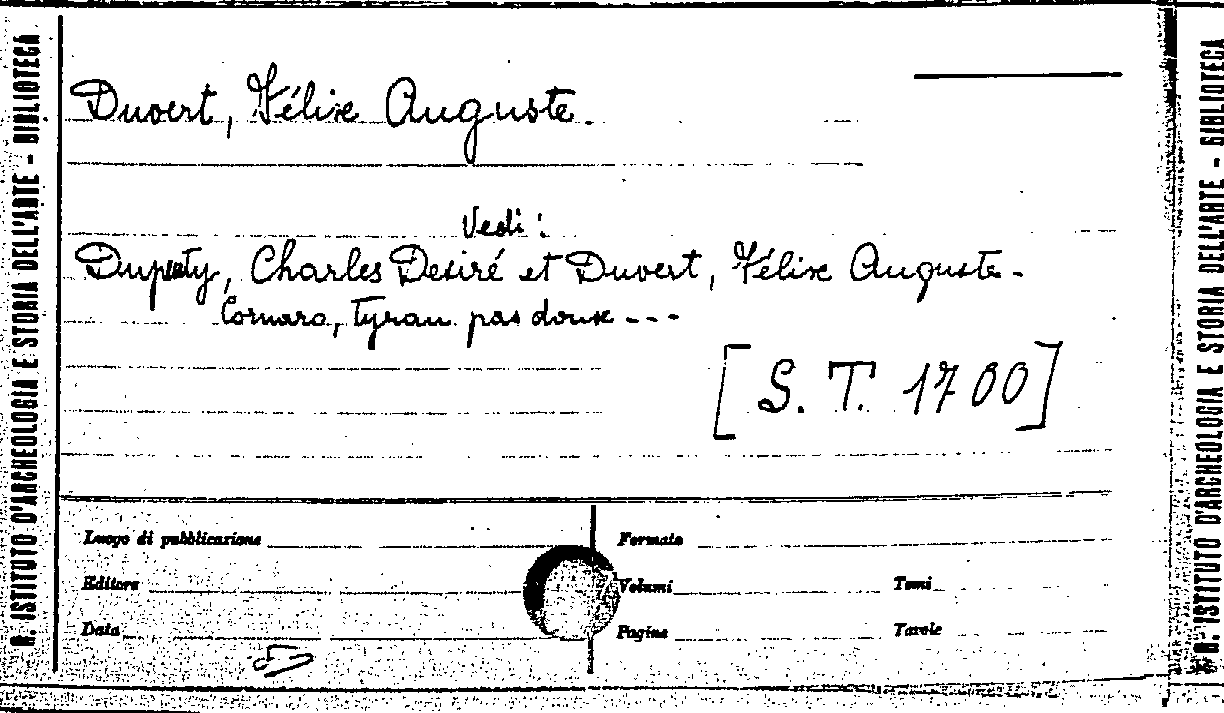 R. ISTITUTO D'ARCHEOLOGIA E STORIA DELL'ARTE - BIBLIOTECA
Duvert, Félix Auguste.
Vedi:
Dupety, Charles Desiré et Duvert, Félix Auguste.
Cornaro, Tyran pas doux ---
[S. T. 1700]
Luogo di pubblicazione
Formato
Editore
Volumi
Tomi
Data
Pagine
Tavole
R. ISTITUTO D'ARCHEOLOGIA E STORIA DELL'ARTE - BIBLIOTECA